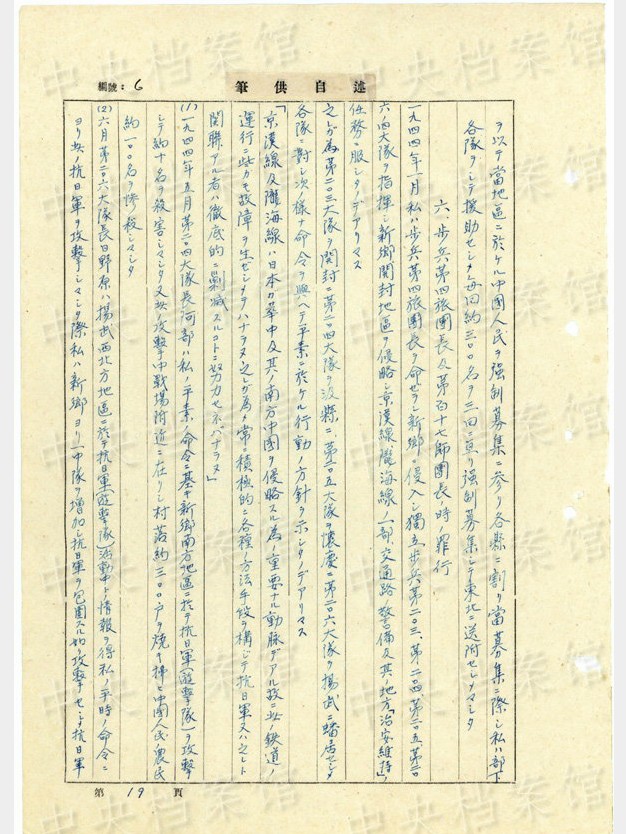 編號：6
筆供自述
ヲ以テ當地區ニ於ケル中國人民ヲ強制募集ニ參リ各縣ニ割リ當募集ニ際シ私ハ部下
各隊ヲシテ援助セシメ毎回約三〇〇名ヲ三回ニ亘リ強制募集シテ東北ニ送附セシメマシタ
六、歩兵第四旅團長及第百十七師團長ノ時ノ罪行
一九四四年一月私ハ歩兵第四旅團長ヲ命ゼラレ新郷ニ侵入シ獨立歩兵第二〇三、第二〇四、第二〇五、第二〇
六ノ四大隊ヲ指揮シ新郷、開封地區ヲ侵略シ京漢線隴海線ノ一部、交通路ノ警備及其ノ地方ノ「治安維持」ノ
任務ニ服シタノデアリマス
之レガ為第二〇三大隊ヲ開封ニ第二〇四大隊ヲ汲縣ニ第二〇五大隊ヲ懐慶ニ第二〇六大隊ヲ揚武ニ蟠居セシメ
各隊ニ對シ次ノ様ナ命令ヲ與ヘテ平素ニ於ケル行動ノ方針ヲ示シタノデアリマス
「京漢線及隴海線ハ日本ガ華中及其ノ南方中國ヲ侵略スル為ノ重要ナル動脈デアル故ニ此ノ鉄道ノ
運行ニ些カモ故障ヲ生ゼシメテハナラヌ之レガ為メ常ニ積極的ニ各種ノ方法手段ヲ構ジテ抗日軍又ハ之レト
関聯アル者ハ徹底的ニ剿滅スルコトニ努力セネバナラヌ」
(1) 一九四四年五月第二〇四大隊長阿部ハ私ノ平素ノ命令ニ基キ新郷南方地區ニ於テ抗日軍(遊撃隊)ヲ攻撃
シテ約十名ヲ殺害シマシタ又此ノ攻撃中戦場附近ニ在リシ村落約三〇〇戸ヲ焼キ拂ヒ中國人民ノ農民
約一〇〇名ヲ慘殺シマシタ
(2) 六月第二〇六大隊長日野原ハ揚武西北方地區ニ於テ抗日軍(遊撃隊)活動中トノ情報ヲ得私ノ平時ノ命令ニ
ヨリ此ノ抗日軍ヲ攻撃シマシタ際私ハ新郷ヨリ一中隊ヲ増加シ抗日軍ヲ包圍スル如ク攻撃セシメ抗日軍
第 19 頁
中央档案馆